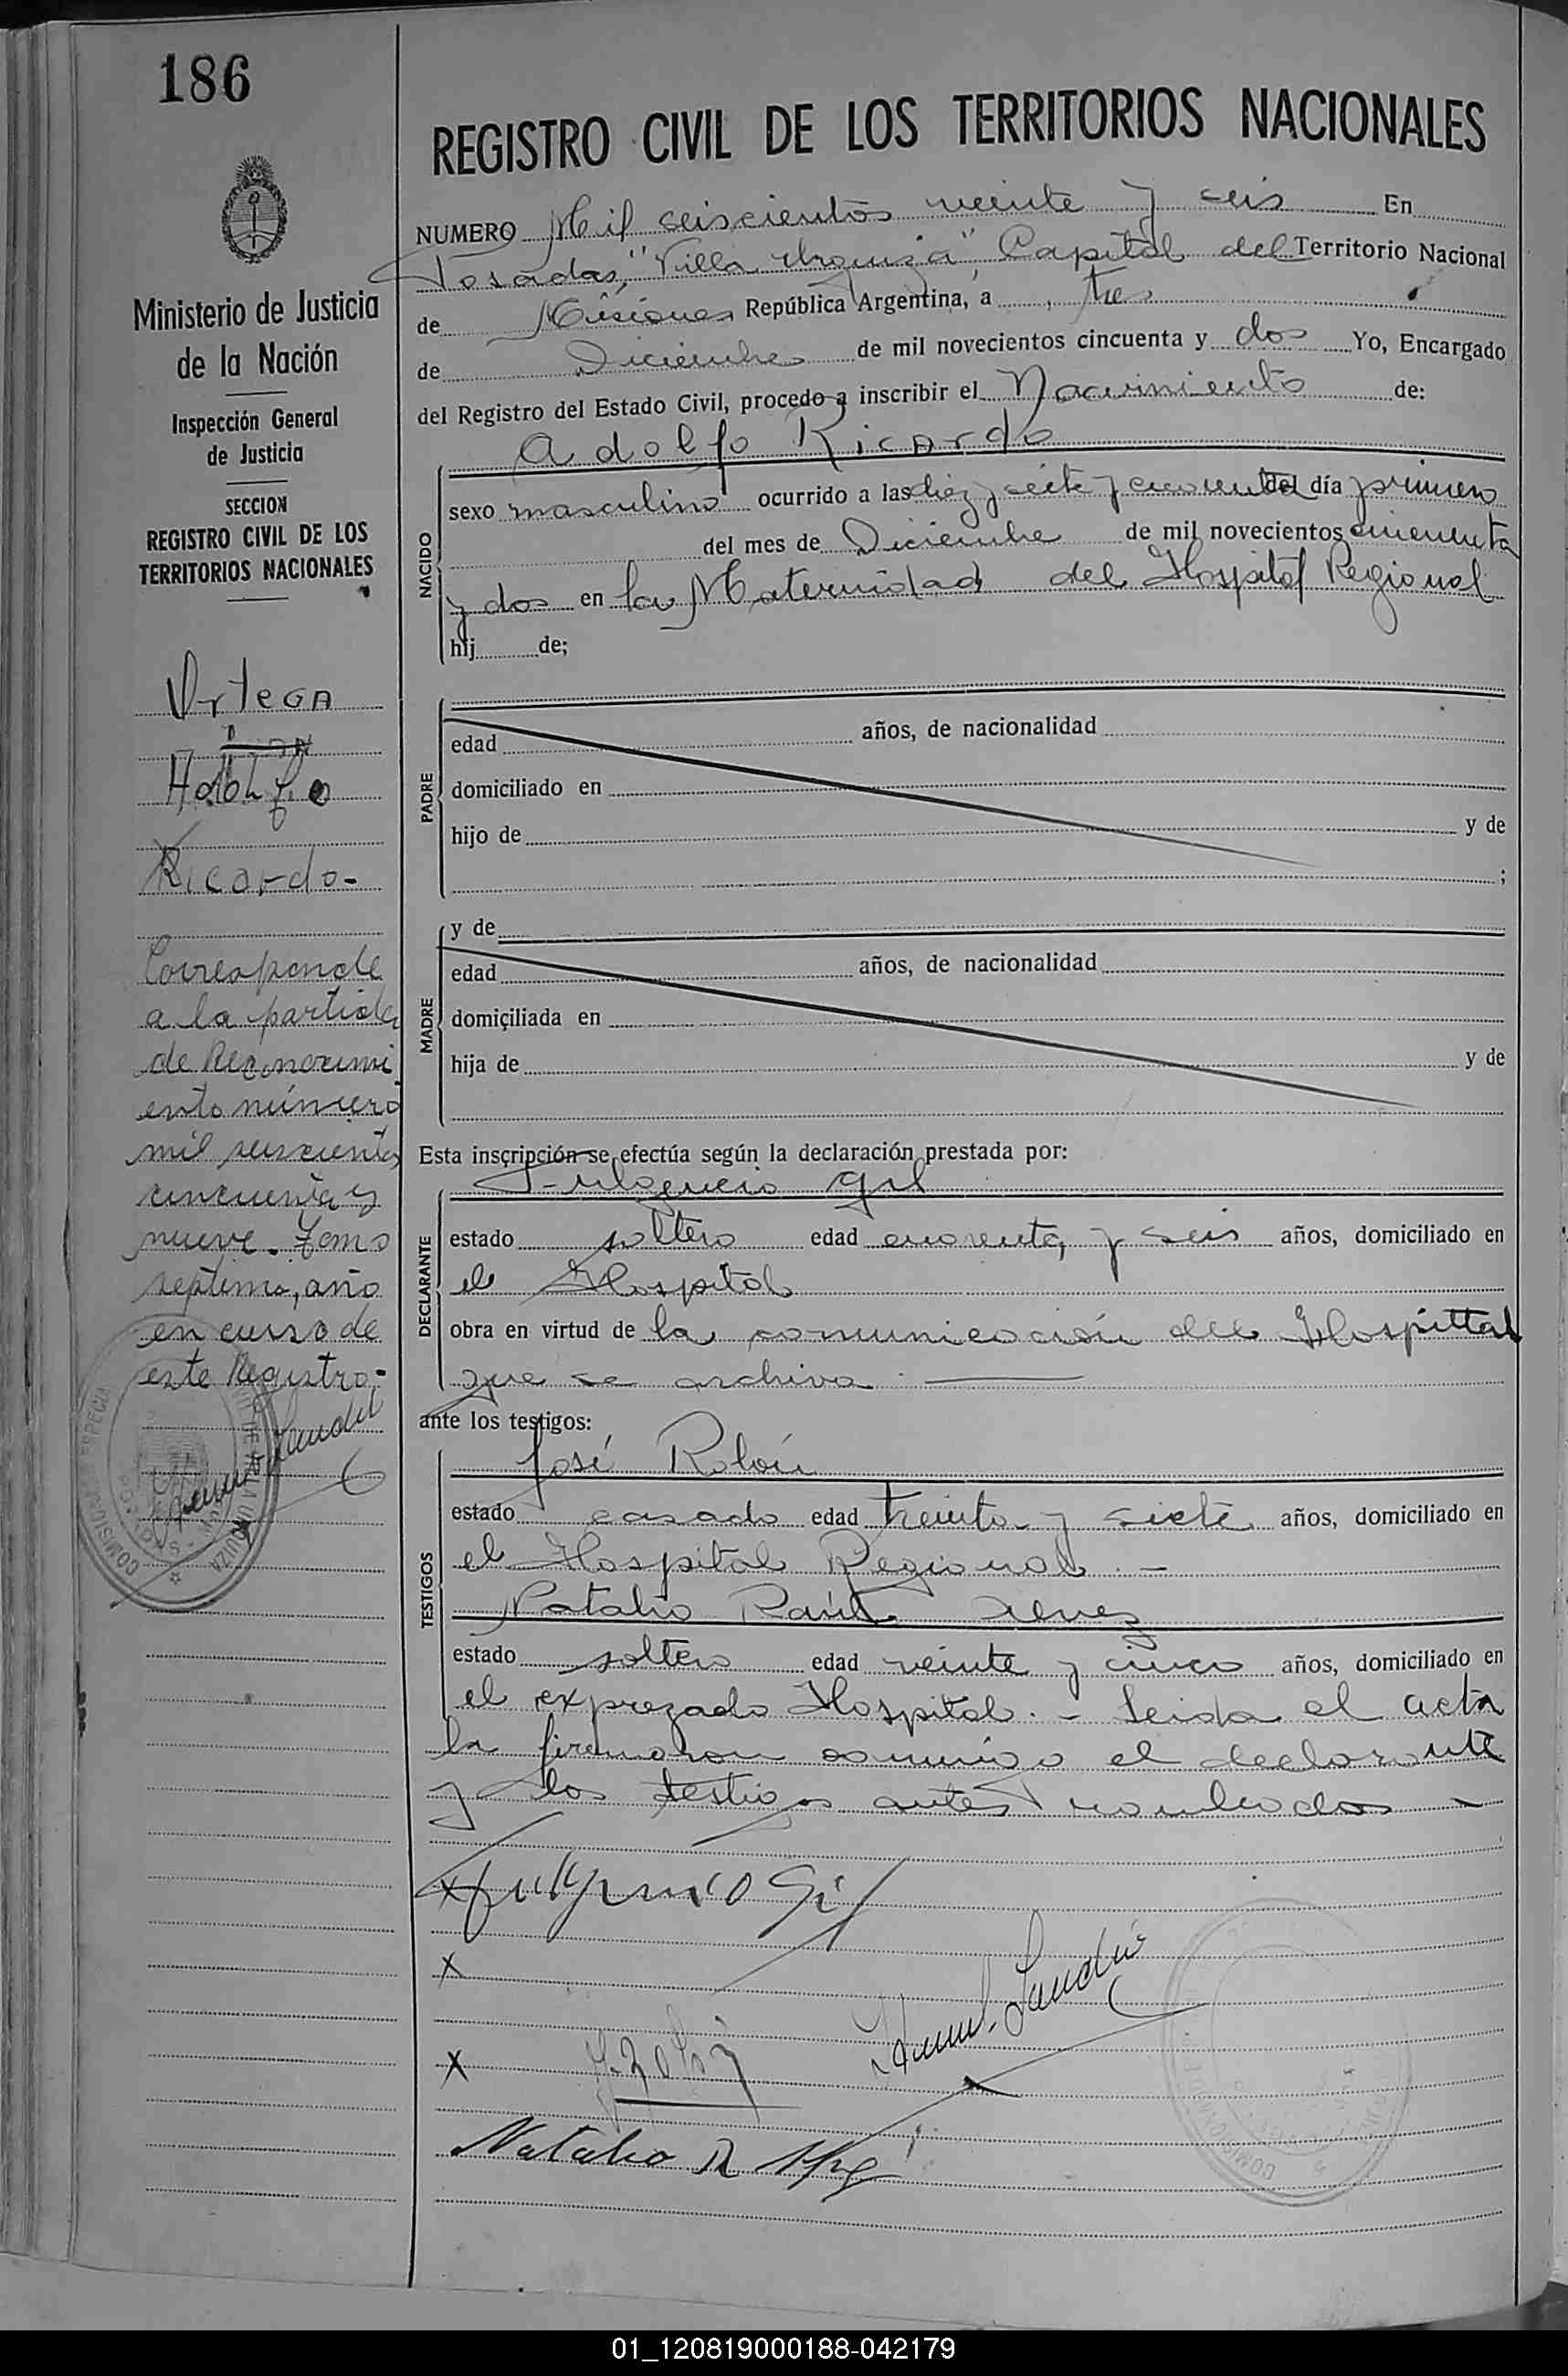 186
REGISTRO CIVIL DE LOS TERRITORIOS NACIONALES
NUMERO Mil seiscientos veinte y seis En
Posadas, "Villa Urquiza", Capital del Territorio Nacional
de Misiones República Argentina, a tres
de Diciembre de mil novecientos cincuenta y dos Yo, Encargado
del Registro del Estado Civil, procedo a inscribir el Nacimiento de:
Adolfo Ricardo
NACIDO
sexo masculino ocurrido a las diez y siete y cuarenta del día primero
del mes de Diciembre de mil novecientos cincuenta
y dos en la Maternidad del Hospital Regional
hij de;
PADRE
edad años, de nacionalidad
domiciliado en
hijo de y de
;
MADRE
y de
edad años, de nacionalidad
domiciliada en
hija de y de
Esta inscripción se efectúa según la declaración prestada por:
DECLARANTE
Gil
estado soltero edad cuarenta y seis años, domiciliado en
el Hospital
obra en virtud de la comunicación del Hospittal
que se archiva
ante los testigos:
TESTIGOS
José Rolón
estado casado edad treinta y siete años, domiciliado en
el Hospital Regional. -
Natalio Raúl
estado soltero edad veinte y cinco años, domiciliado en
el exprezado Hospital. - Leida el acta
la firmaron conmigo el declarante
y los testigos antes nombrados -
x Gil
x
x
Natalio R
Ministerio de Justicia
de la Nación
Inspección General
de Justicia
SECCION
REGISTRO CIVIL DE LOS
TERRITORIOS NACIONALES
Ortega
Adolfo
Ricardo-
Corresponde
a la partida
de Reconocimi
ento número
mil seiscientos
cincuenta y
nueve. Tomo
septimo, año
en curso de
este Registro-
01_120819000188-042179